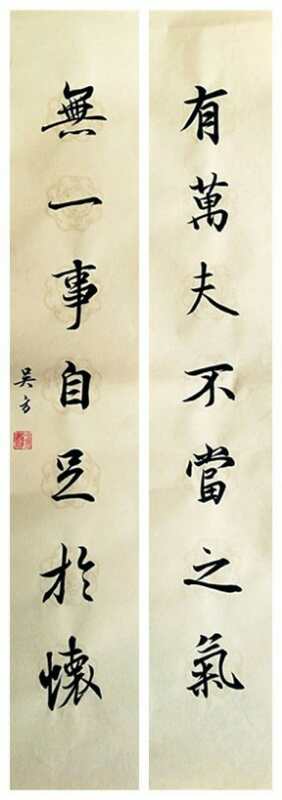 有萬夫不當之氣
無一事自足於懷
吴方